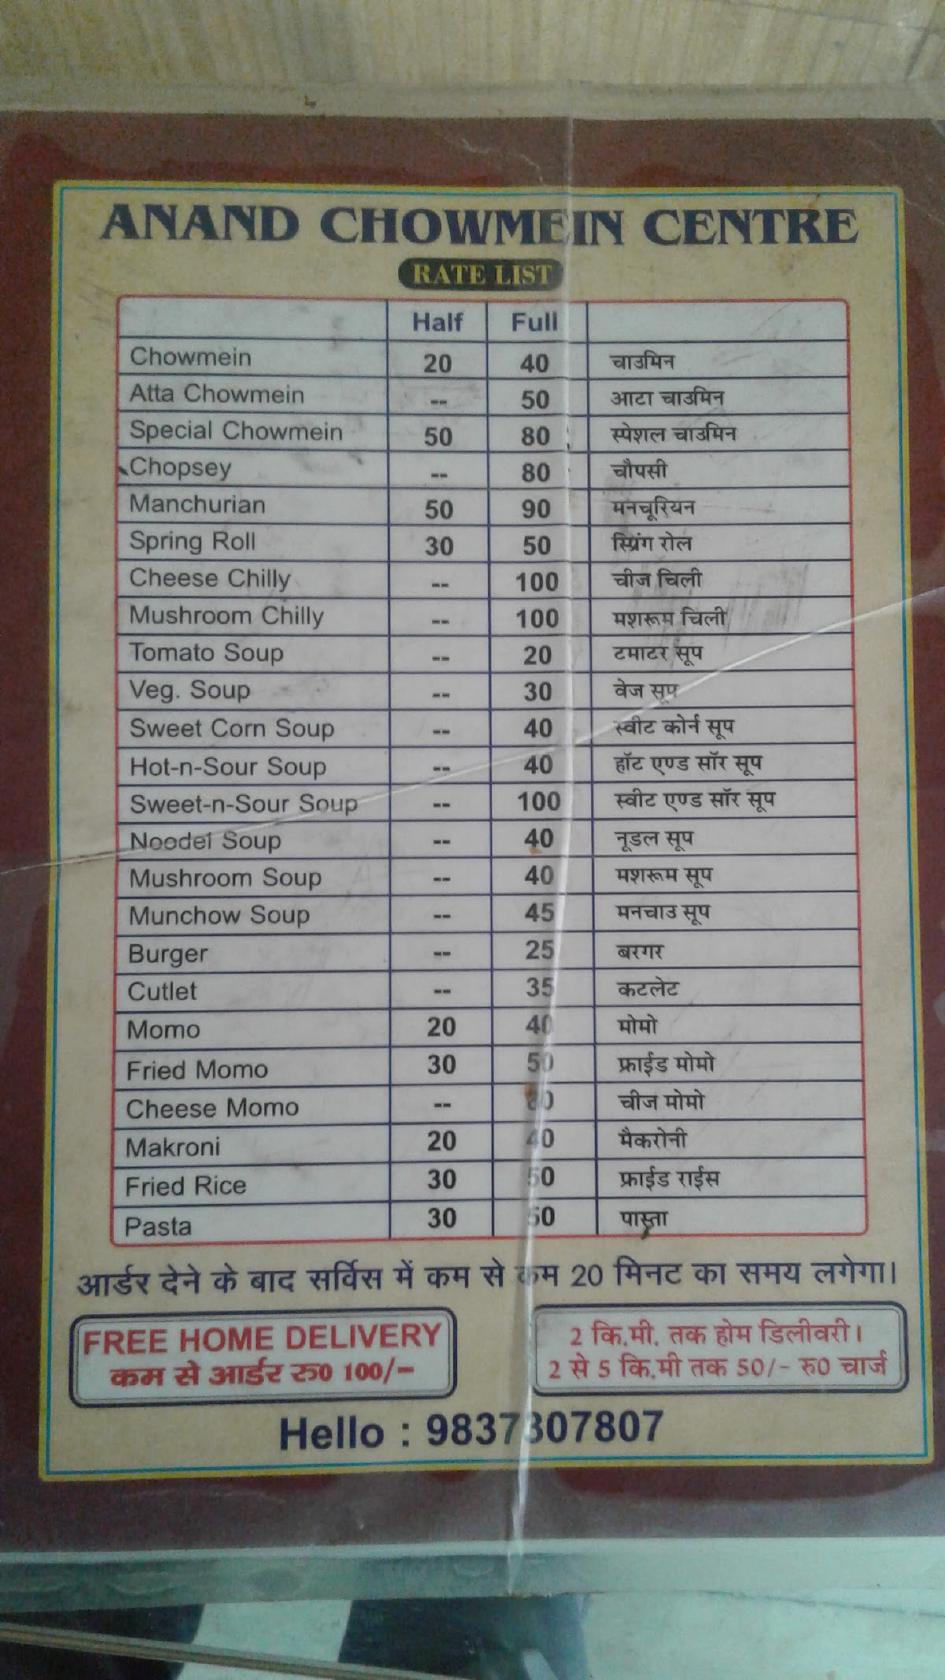 ANAND CHOWMEIN CENTRE
RATE LIST
Half Full
Chowmein 20 40 चाउमिन
Atta Chowmein -- 50 आटा चाउमिन
Special Chowmein 50 80 स्पेशल चाउमिन
Chopsey -- 80 चौपसी
Manchurian 50 90 मनचूरियन
Spring Roll 30 50 स्प्रिंग रोल
Cheese Chilly -- 100 चीज चिली
Mushroom Chilly -- 100 मशरूम चिली
Tomato Soup -- 20 टमाटर सूप
Veg. Soup -- 30 वेज सूप
Sweet Corn Soup -- 40 स्वीट कोर्न सूप
Hot-n-Sour Soup -- 40 हॉट एण्ड सॉर सूप
Sweet-n-Sour Soup -- 100 स्वीट एण्ड सॉर सूप
Noodel Soup -- 40 नूडल सूप
Mushroom Soup -- 40 मशरूम सूप
Munchow Soup -- 45 मनचाउ सूप
Burger -- 25 बरगर
Cutlet -- 35 कटलेट
Momo 20 40 मोमो
Fried Momo 30 50 फ्राईड मोमो
Cheese Momo -- चीज मोमो
Makroni 20 40 मैकरोनी
Fried Rice 30 50 फ्राईड राईस
Pasta 30 50 पास्ता
आर्डर देने के बाद सर्विस में कम से कम 20 मिनट का समय लगेगा।
FREE HOME DELIVERY
कम से आर्डर रु0 100/-
2 कि.मी. तक होम डिलीवरी।
2 से 5 कि.मी तक 50/- रु0 चार्ज
Hello : 9837307807